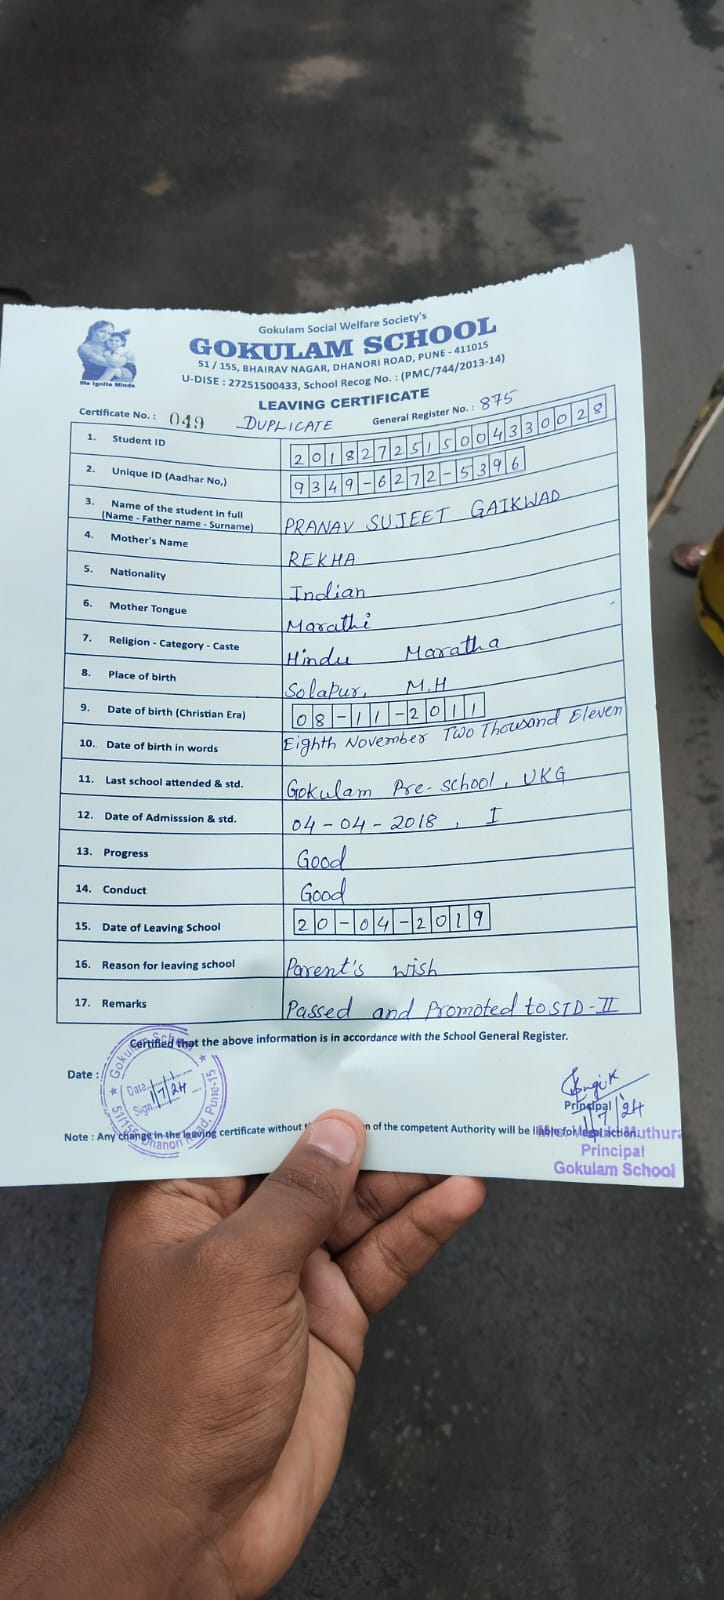 Gokulam Social Welfare Society's
GOKULAM SCHOOL
51 / 155, BHAIRAV NAGAR, DHANORI ROAD, PUNE - 411015
U-DISE : 27251500433, School Recog No. : (PMC/744/2013-14)
We Ignite Minds
LEAVING CERTIFICATE
Certificate No. : 049 DUPLICATE General Register No. : 875
1. Student ID 2018272515004330028
2. Unique ID (Aadhar No,) 9349-6272-5396
3. Name of the student in full
(Name - Father name - Surname) PRANAV SUJEET GAIKWAD
4. Mother's Name REKHA
5. Nationality Indian
6. Mother Tongue Marathi
7. Religion - Category - Caste Hindu Maratha
8. Place of birth Solapur, M.H
9. Date of birth (Christian Era) 08-11-2011
10. Date of birth in words Eighth November Two Thousand Eleven
11. Last school attended & std. Gokulam Pre-school, UKG
12. Date of Admisssion & std. 04-04-2018, I
13. Progress Good
14. Conduct Good
15. Date of Leaving School 20-04-2019
16. Reason for leaving school Parent's wish
17. Remarks Passed and Promoted to STD-II
Certified that the above information is in accordance with the School General Register.
Date :
Gokulam School
Date 1/7/24
Sign
51/155 Dhanori Road, Pune-15
Principal
1/7/24
Note : Any change in the leaving certificate without of the competent Authority will be liable for legal action.
Principal
Gokulam School